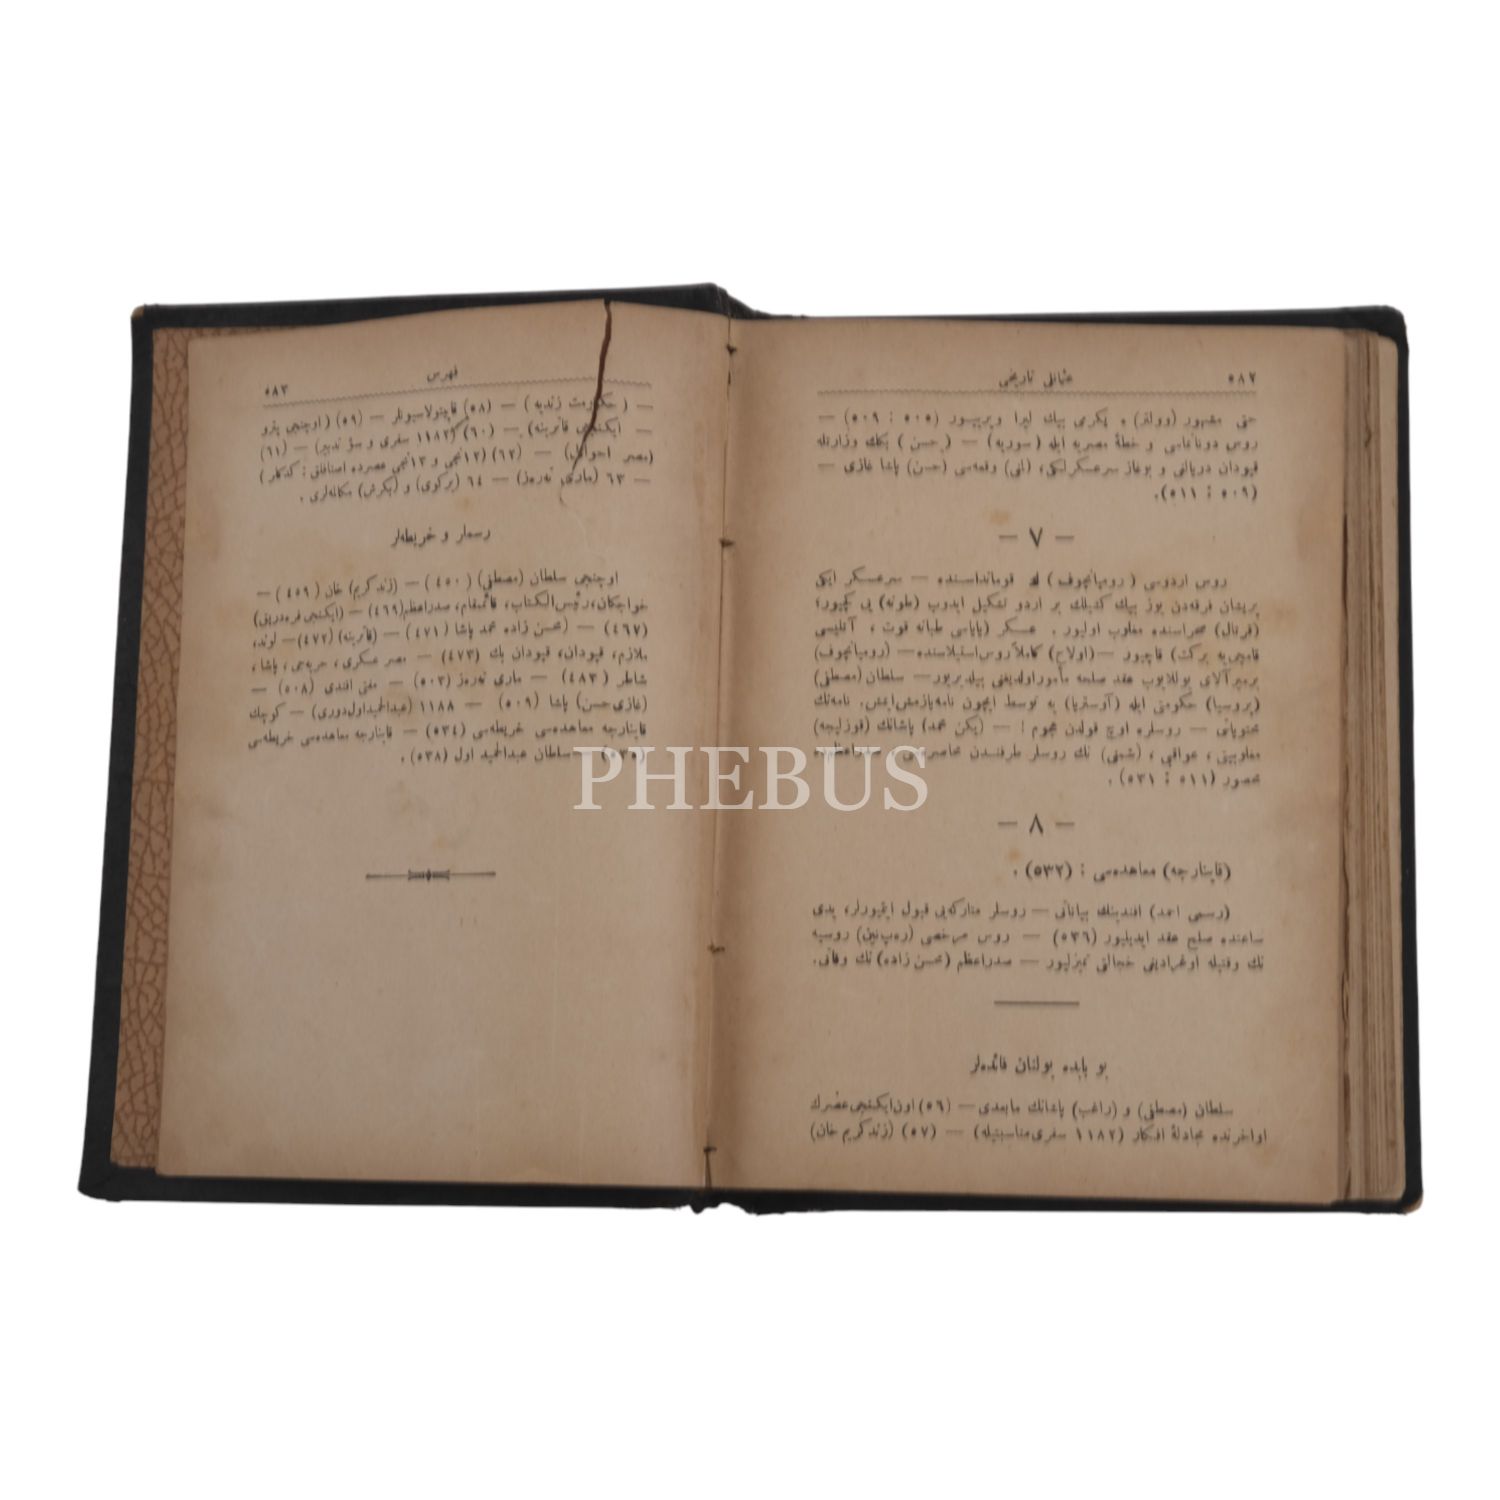 ٥٨٢
عثمانلی تاریخی
حتی مشهور (وولتر) ه یکرمی بیك لیرا ویرییور (٥٠٥ : ٥٠٩) —
روس دونانماسی و خطهٔ مصریه ایله (سوریه) — (حسن) بكك وزارتله
قپودان دریالغی و بوغاز سرعسكرلكی، (لمنی) وقعه‌سی (حسن) پاشا غازی —
(٥٠٩ : ٥١١).
— ٧ —
روس اردوسی (رومیانچوف) ك قومانداسنده — سرعسکر ایکی
پریشان فرقه‌دن یوز بیك كشیلك بر اردو تشكیل ایدوب (طونه) یی کچیور؛
(قرتال) صحراسنده مغلوب اولیور. عسکر (پاپاسی طبانه قوت، آتلیسی
قامچی‌یه برکت) قاچیور — (اولاح) كاملاً روس استیلاسنده — (رومیانچوف)
برمیرآلای یوللایوب عقد صلحه مأمور اولدیغنی بیلدیریور — سلطان (مصطفی)
(پروسیا) حكومتی ایله (آوستریا) یه توسط ایچون نامه یازمش ایمش. نامه‌نك
محتویاتی — روسلره اوچ قولدن هجوم ! — (یکن محمد) پاشانك (قوزلیجه)
مغلوبیتی، عواقبی، (شمنی) نك روسلر طرفندن محاصره‌سی صدراعظم‌ده
محصور (٥١١ : ٥٣١).
— ٨ —
(قاینارجه) معاهده‌سی : (٥٣٢).
(رسمی احمد) افندینك بیاناتی — روسلر متاركه‌یی قبول ایتمیورلر، یدی
ساعتده صلح عقد ایدیلیور (٥٣٦) — روس مرخصی (ره‌پ‌نین) روسیه
نك وقتیله اوغرادیغی خجالتی تمیزلیور — صدراعظم (محسن زاده) نك وفاتی.
بو بابده بولنان فائده‌لر
سلطان (مصطفی) و (راغب) پاشانك مابعدی — (٥٦) اون ایکنجی عصرك
اواخرنده مجادلهٔ افكار (١١٨٢ سفری مناسبتیله) — (٥٧) (زند كریم خان)
فهرس
٥٨٣
— (حكومت زندیه) — (٥٨) قاپیتولاسیونلر — (٥٩) (اوچنجی پترو
— ایکنجی قاترینه) — (٦٠) ١١٨٢ سفری و سؤ تدبیر) — (٦١)
(مصر احوالی) — (٦٢) (١٢نجی و ١٣نجی عصرده اصنافلق : كدكلر)
— ٦٣ (ماری ته‌ره‌ز) — ٦٤ (برکوی) و (بکرش) مكالمه‌لری.
رسملر و خریطه‌لر
اوچنجی سلطان (مصطفی) (٤٥٠) — (زند كریم) خان (٤٥٩) —
خواجكان، رئیس الكتاب، قائمقام، صدراعظم (٤٦٩) — (ایکنجی فره‌دریق)
(٤٦٧) — (محسن زاده محمد پاشا (٤٧١) — (قاترینه) (٤٧٢) — لوند،
ملازم، قپودان، قپودان بك (٤٧٣) — مصر عسکری، حربه‌جی، پاشا،
شاطر (٤٨٣) — ماری ته‌ره‌ز (٥٠٣) — مفتی افندی (٥٠٨) —
(غازی حسن) پاشا (٥٠٩) — ١١٨٨ (عبدالحمید اول دوری) — كوچك
قاینارجه معاهده‌سی خریطه‌سی (٥٣٤) — قاینارجه معاهده‌سی خریطه‌سی
(٥٣٥) — سلطان عبدالحمید اول (٥٣٨).
PHEBUS